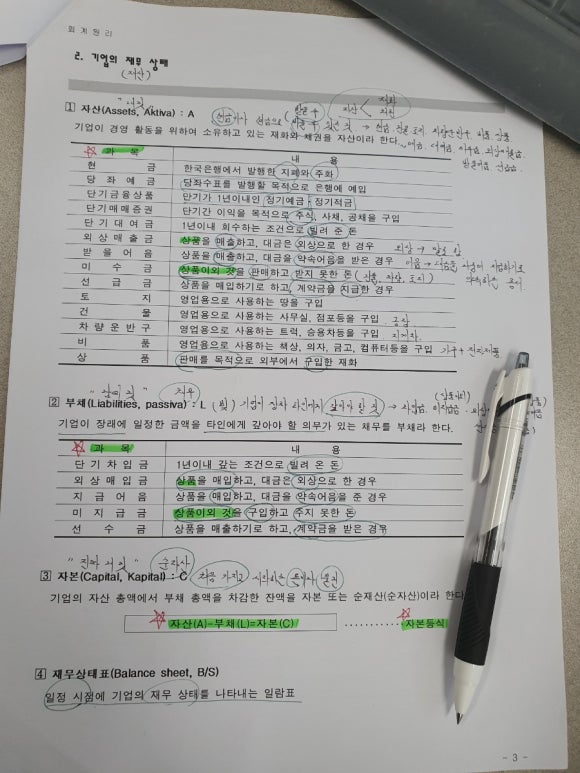 회계원리
2. 기업의 재무 상태
(자산)
① 자산(Assets, Aktiva) : A
기업이 경영 활동을 위하여 소유하고 있는 재화와 채권을 자산이라 한다.
과 목 내 용
현 금 한국은행에서 발행한 지폐와 주화
당 좌 예 금 당좌수표를 발행할 목적으로 은행에 예입
단기금융상품 단기가 1년이내인 정기예금·정기적금
단기매매증권 단기간 이익을 목적으로 주식, 사채, 공채를 구입
단 기 대 여 금 1년이내 회수하는 조건으로 빌려 준 돈
외 상 매 출 금 상품을 매출하고, 대금은 외상으로 한 경우
받 을 어 음 상품을 매출하고, 대금을 약속어음을 받은 경우
미 수 금 상품이외 것을 판매하고, 받지 못한 돈
선 급 금 상품을 매입하기로 하고, 계약금을 지급한 경우
토 지 영업용으로 사용하는 땅을 구입
건 물 영업용으로 사용하는 사무실, 점포등을 구입 공장
차 량 운 반 구 영업용으로 사용하는 트럭, 승용차등을 구입 지게차
비 품 영업용으로 사용하는 책상, 의자, 금고, 컴퓨터등을 구입 가구 + 전자제품
상 품 판매를 목적으로 외부에서 구입한 재화
② 부채(Liabilities, passiva) : L (빚) 기업이 장차 타인에게 갚아야 할 것
기업이 장래에 일정한 금액을 타인에게 갚아야 할 의무가 있는 채무를 부채라 한다.
과 목 내 용
단 기 차 입 금 1년이내 갚는 조건으로 빌려 온 돈
외 상 매 입 금 상품을 매입하고, 대금은 외상으로 한 경우
지 급 어 음 상품을 매입하고, 대금을 약속어음을 준 경우
미 지 급 금 상품이외 것을 구입하고 주지 못한 돈
선 수 금 상품을 매출하기로 하고, 계약금을 받은 경우
" 진짜 내것 " 순자산
③ 자본(Capital, Kapital) : C
기업의 자산 총액에서 부채 총액을 차감한 잔액을 자본 또는 순재산(순자산)이라 한다
자산(A)-부채(L)=자본(C) ············ 자본등식
④ 재무상태표(Balance sheet, B/S)
일정 시점에 기업의 재무 상태를 나타내는 일람표
- 3 -